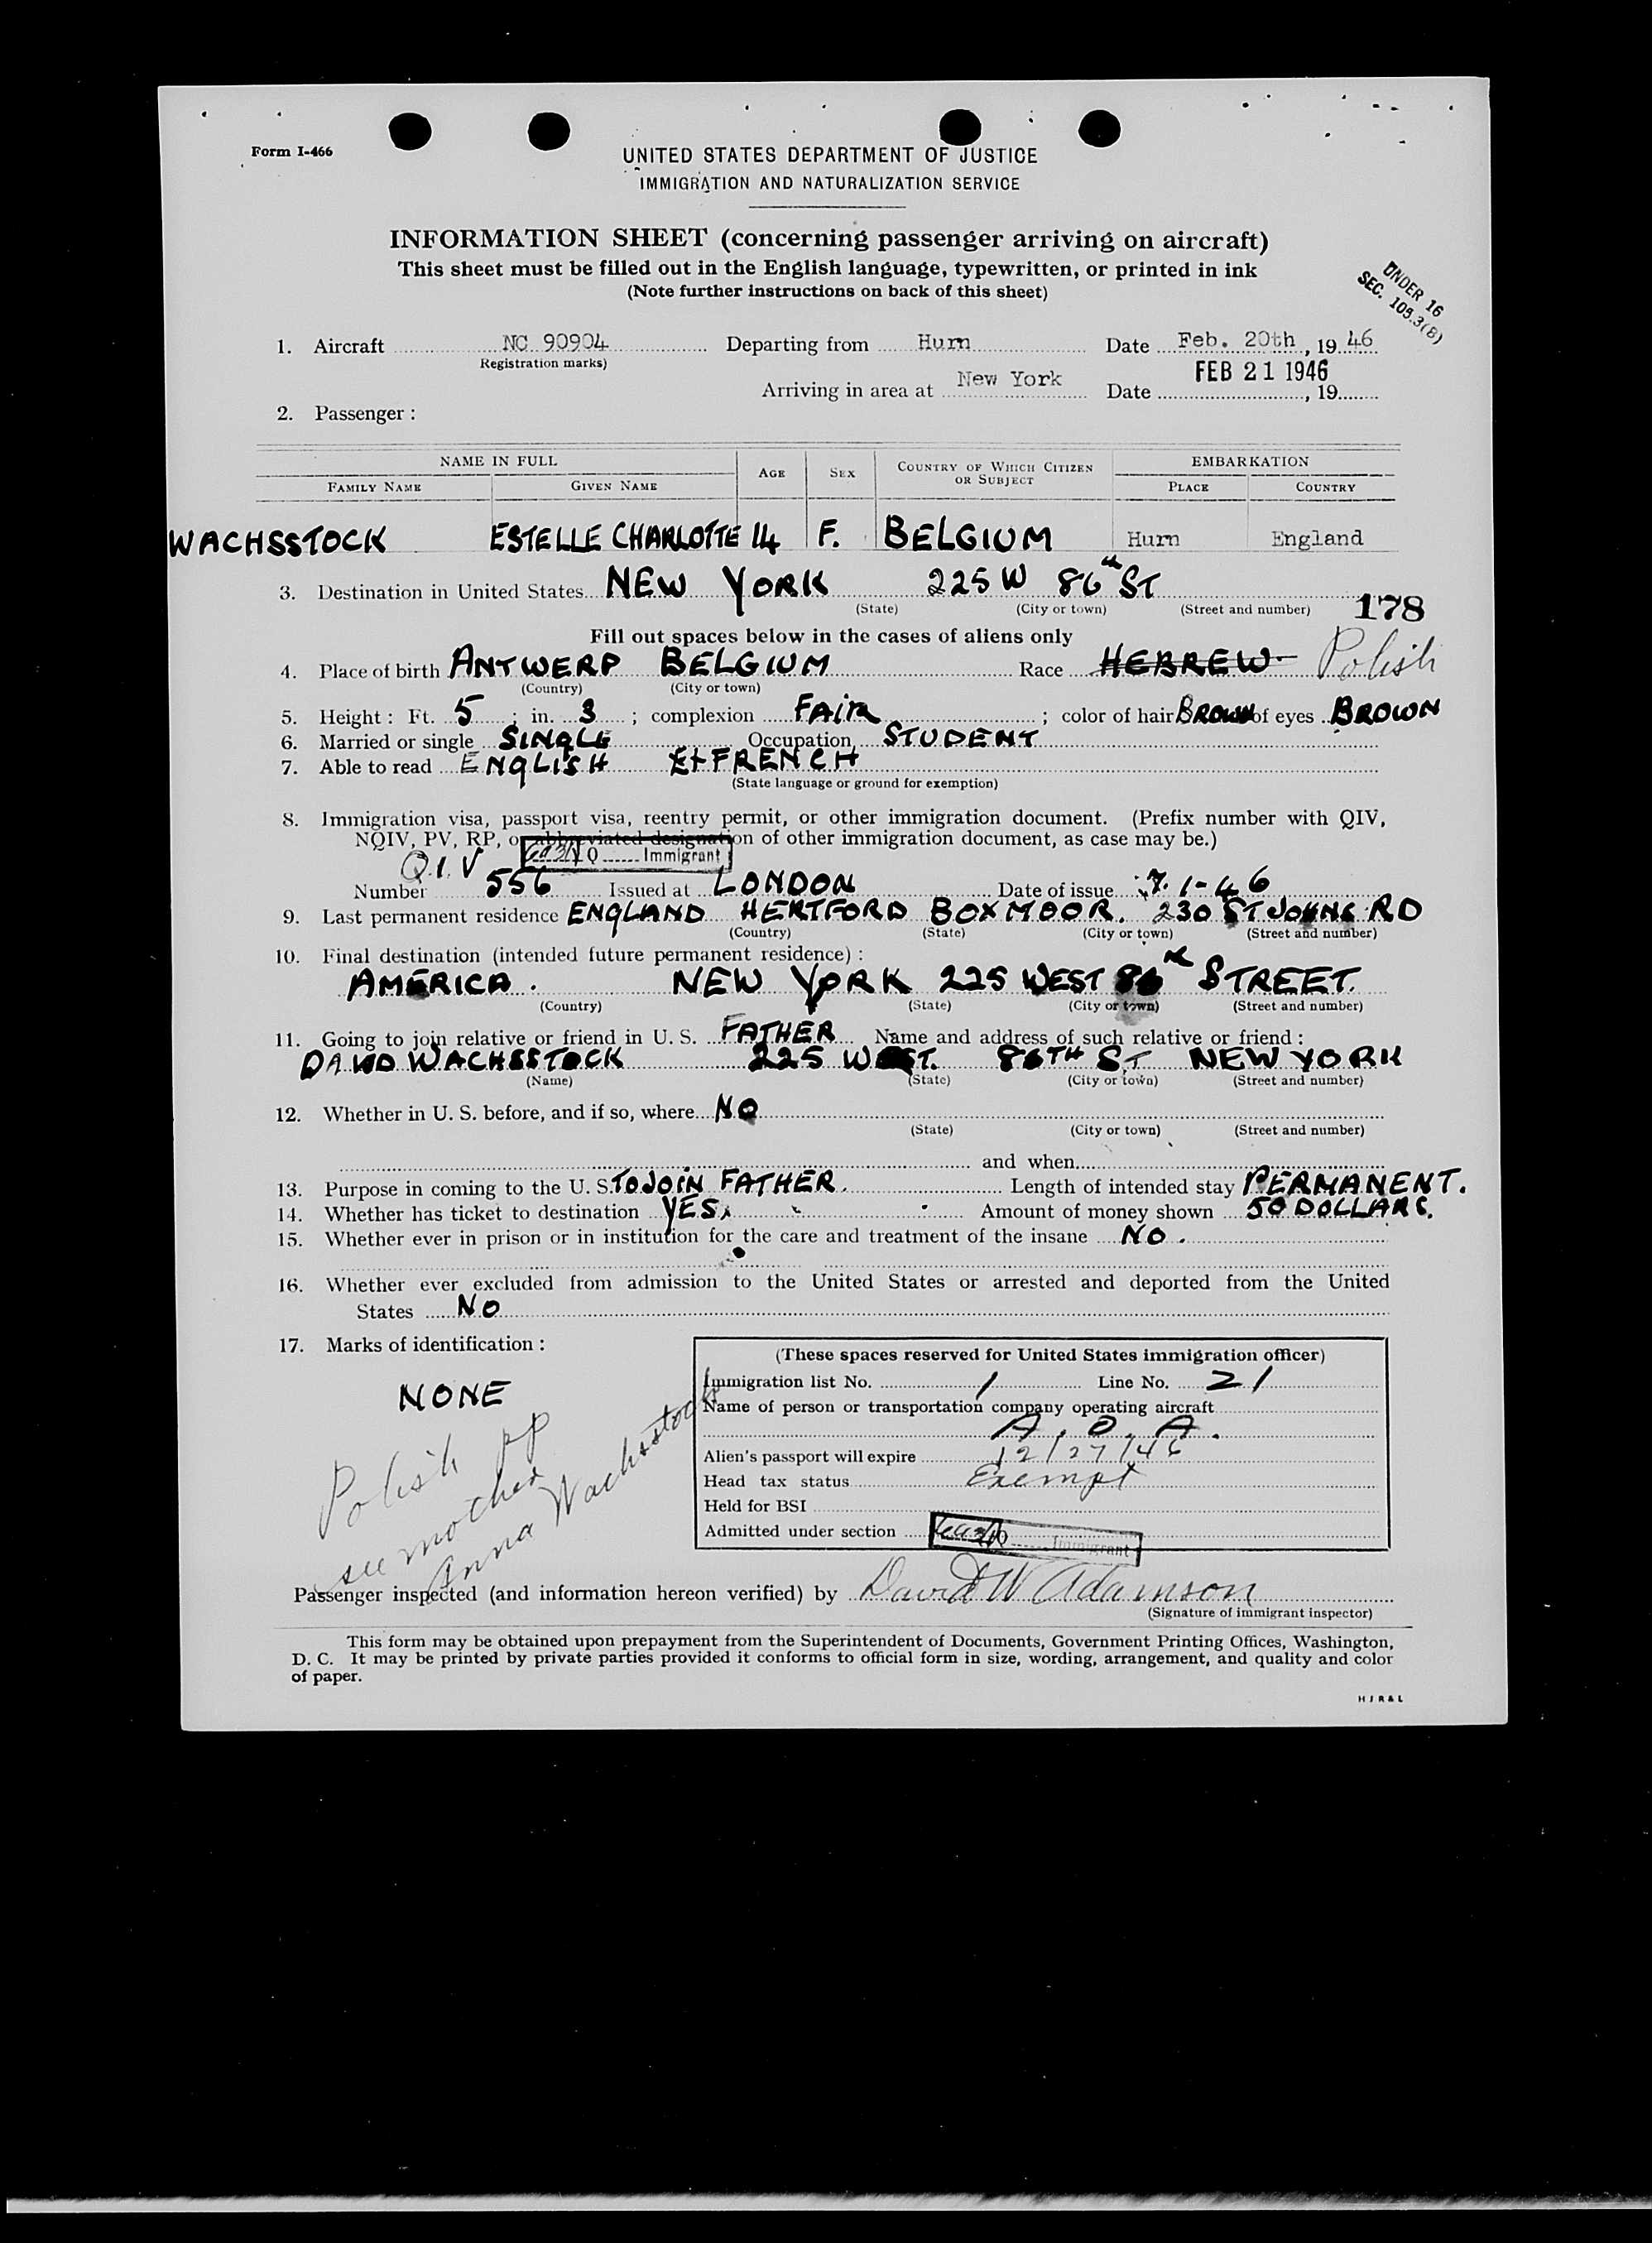 Form I-466
UNITED STATES DEPARTMENT OF JUSTICE
IMMIGRATION AND NATURALIZATION SERVICE
INFORMATION SHEET (concerning passenger arriving on aircraft)
This sheet must be filled out in the English language, typewritten, or printed in ink
(Note further instructions on back of this sheet)
UNDER 16
SEC. 108.3(B)
1. Aircraft NC 90904 Departing from Hurn Date Feb. 20th, 1946
(Registration marks)
FEB 21 1946
Arriving in area at New York Date , 19
2. Passenger :
NAME IN FULL AGE SEX COUNTRY OF WHICH CITIZEN OR SUBJECT EMBARKATION
FAMILY NAME GIVEN NAME PLACE COUNTRY
WACHSSTOCK ESTELLE CHARLOTTE 14 F. BELGIUM Hurn England
3. Destination in United States NEW YORK 225 W 86th ST
(State) (City or town) (Street and number) 178
Fill out spaces below in the cases of aliens only
4. Place of birth ANTWERP BELGIUM Race HEBREW Polish
(Country) (City or town)
5. Height : Ft. 5 ; in. 3 ; complexion FAIR ; color of hair BROWN of eyes BROWN
6. Married or single SINGLE Occupation STUDENT
7. Able to read ENGLISH Et FRENCH
(State language or ground for exemption)
8. Immigration visa, passport visa, reentry permit, or other immigration document. (Prefix number with QIV,
NQIV, PV, RP, or abbreviated designation of other immigration document, as case may be.)
Q.I.V Q Immigrant
Number 556 Issued at LONDON Date of issue 7.1-46
9. Last permanent residence ENGLAND HERTFORD BOXMOOR. 230 ST JOHNS RD
(Country) (State) (City or town) (Street and number)
10. Final destination (intended future permanent residence) :
AMERICA. NEW YORK 225 WEST 86th STREET.
(Country) (State) (City or town) (Street and number)
11. Going to join relative or friend in U. S. FATHER Name and address of such relative or friend :
DAVID WACHSSTOCK 225 WEST. 86TH ST NEW YORK
(Name) (State) (City or town) (Street and number)
12. Whether in U. S. before, and if so, where NO
(State) (City or town) (Street and number)
and when
13. Purpose in coming to the U. S. TO JOIN FATHER. Length of intended stay PERMANENT.
14. Whether has ticket to destination YES. Amount of money shown 50 DOLLARS.
15. Whether ever in prison or in institution for the care and treatment of the insane NO.
16. Whether ever excluded from admission to the United States or arrested and deported from the United
States NO
17. Marks of identification :
NONE
Polish pp
see mother
Anna Wachsstock
(These spaces reserved for United States immigration officer)
Immigration list No. 1 Line No. 21
Name of person or transportation company operating aircraft
A.O.A.
Alien's passport will expire 12/27/46
Head tax status Exempt
Held for BSI
Admitted under section Immigrant
Passenger inspected (and information hereon verified) by David W Adamson
(Signature of immigrant inspector)
This form may be obtained upon prepayment from the Superintendent of Documents, Government Printing Offices, Washington,
D. C. It may be printed by private parties provided it conforms to official form in size, wording, arrangement, and quality and color
of paper.
H J R & L